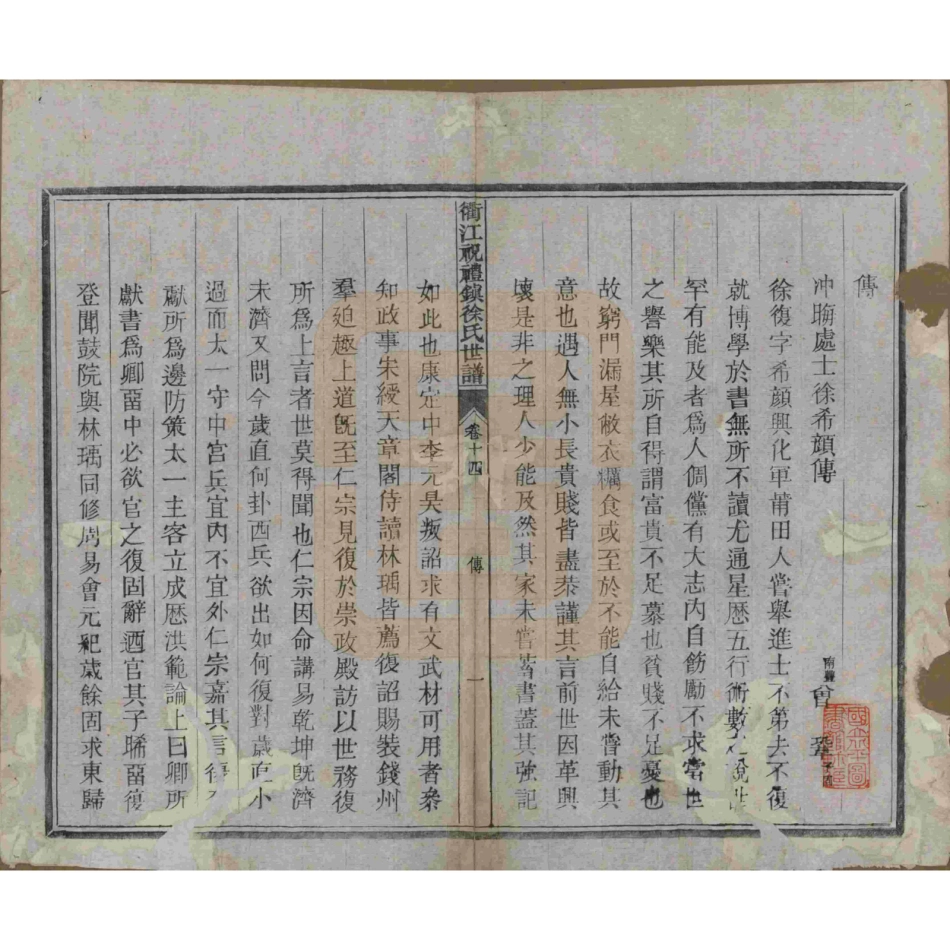 傳
冲晦處士徐希顔傳
南豐 曾 鞏
徐復字希顔興化軍莆田人嘗舉進士不第去不復
就博學於書無所不讀尤通星厯五行術數之說
罕有能及者爲人倜儻有大志內自飭勵不求當世
之譽樂其所自得謂富貴不足慕也貧賤不足憂也
故窮門漏屋敝衣糲食或至於不能自給未嘗動其
意也遇人無小長貴賤皆盡恭謹其言前世因革興
壞是非之理人少能及然其家未嘗蓄書蓋其強記
衢江祝禮鎮徐氏世譜 卷十四 傳 一
如此也康定中李元昊叛詔求有文武材可用者叅
知政事朱綬天章閣侍讀林瑀皆薦復詔賜裝錢州
羣廹趣上道旣至仁宗見復於崇政殿訪以世務復
所爲上言者世莫得聞也仁宗因命講易乾坤旣濟
未濟又問今歲直何卦西兵欲出如何復對歲直小
過而太一守中宮兵宜內不宜外仁宗嘉其言復
獻所爲邊防策太一主客立成厯洪範論上曰卿所
獻書爲卿畱中必欲官之復固辭迺官其子晞畱復
登聞鼓院與林瑀同修周易會元紀歲餘固求東歸